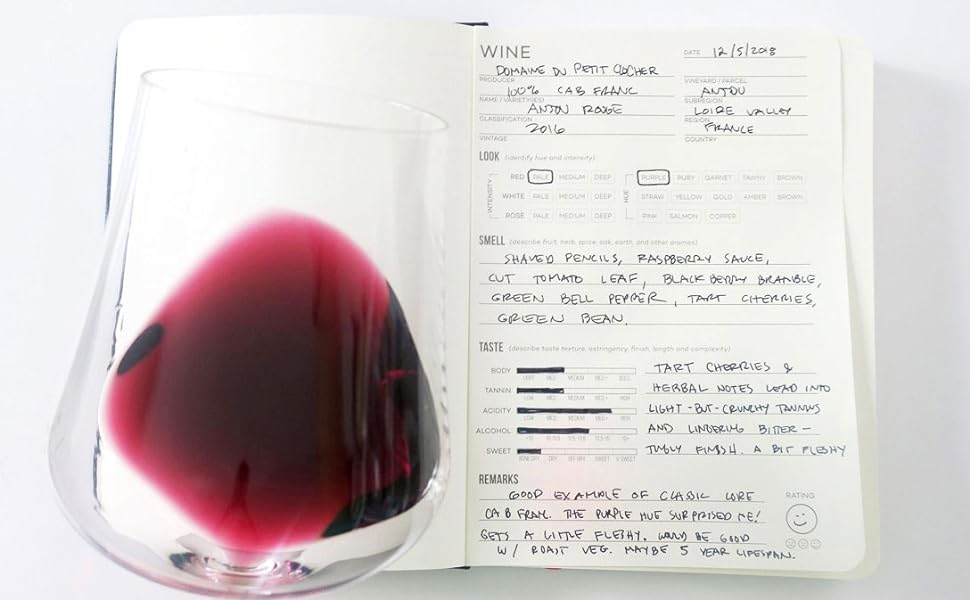 WINE
DATE 12/5/2018
DOMAINE DU PETIT CLOCHER
PRODUCER
VINEYARD / PARCEL
100% CAB FRANC
ANJOU
NAME / VARIETY(IES)
SUBREGION
ANJOU ROUGE
LOIRE VALLEY
CLASSIFICATION
REGION
2016
FRANCE
VINTAGE
COUNTRY
LOOK (identify hue and intensity)
INTENSITY
HUE
RED PALE MEDIUM DEEP PURPLE RUBY GARNET TAWNY BROWN
WHITE PALE MEDIUM DEEP STRAW YELLOW GOLD AMBER BROWN
ROSE PALE MEDIUM DEEP PINK SALMON COPPER
SMELL (describe fruit, herb, spice, oak, earth, and other aromas)
SHAVED PENCILS, RASPBERRY SAUCE,
CUT TOMATO LEAF, BLACKBERRY BRAMBLE,
GREEN BELL PEPPER, TART CHERRIES,
GREEN BEAN.
TASTE (describe taste texture, astringency, finish, length and complexity)
BODY
LIGHT MED- MEDIUM MED+
TANNIN
LOW MED- MEDIUM MED+ HIGH
ACIDITY
LOW MED- MEDIUM MED+ HIGH
ALCOHOL
SWEET
BONE DRY DRY OFF-DRY SWEET V-SWEET
TART CHERRIES &
HERBAL NOTES LEAD INTO
LIGHT-BUT-CRUNCHY TANNINS
AND LINGERING BITTER-
FINISH. A BIT FLESHY
REMARKS
GOOD EXAMPLE OF CLASSIC LOIRE
CAB FRANC. THE PURPLE HUE SURPRISED ME!
GETS A LITTLE FLESHY. WOULD BE GOOD
W/ ROAST VEG. MAYBE 5 YEAR LIFESPAN.
RATING